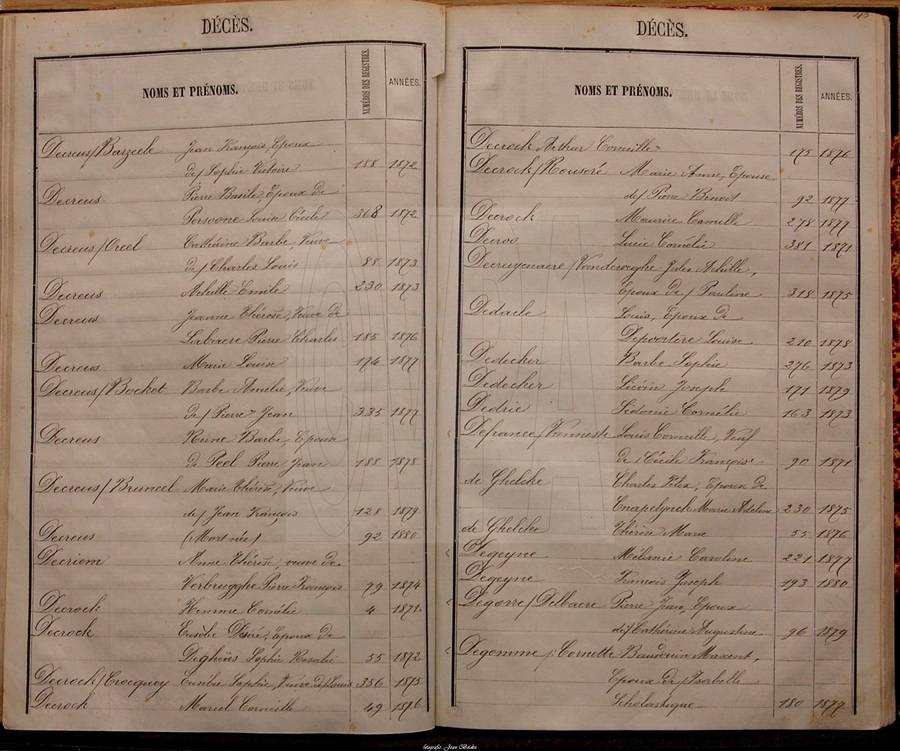 DÉCÈS.
NOMS ET PRÉNOMS. NUMÉROS DES REGISTRES. ANNÉES.
Decreus/ Jean François, Epoux
de/ Sophie Victoire 188 1872
Decreus Pierre Basile, Epoux de
Persoone Louise Cécile 368 1872
Decreus/Creel Cathérine Barbe, Veuve
de/ Charles Louis 88 1873
Decreus Achille Emile 230 1873
Decreus Jeanne Thérèse, Veuve de
Labaere Pierre Charles 185 1876
Decreus Marie Louise 174 1877
Decreus/Bocket Barbe Amélie, Veuve
de/ Pierre Jean 335 1877
Decreus Reine Barbe, Epouse
de Poel Pierre Jean 188 1878
Decreus/Bruneel Marie Thérèse, Veuve
de/ Jean François 128 1879
Decreus (Mort née) 92 1880
Decriem Anne Thérèse, veuve de
Verbrugghe Pierre François 79 1874
Decrock Homme Cornélie 4 1871
Decrock Désiré, Epoux de
Sophie Rosalie 55 1872
Decrock/Crocquey Sophie, Veuve de/Louis 356 1875
Decrock Marcel Corneille 49 1876
45
DÉCÈS.
NOMS ET PRÉNOMS. NUMÉROS DES REGISTRES. ANNÉES.
Decrock Arthur Corneille 175 1876
Decrock/Housoré Marie Anne, Epouse
de/ Pierre Benoit 92 1877
Decrock Maurice Camille 278 1877
Decroo Lucie Cornélie 381 1871
Decruyenaere/Vanderaeghe Jules Achille,
Epoux de/ Pauline 318 1875
Dedaele Louis, Epoux de
Depoortere Louise 210 1878
Dedecker Barbe Sophie 276 1873
Dedecker Liévin Joseph 171 1879
Dedrie Sidonie Cornélie 163 1873
Defrance/Vanneste Louis Corneille, Veuf
de/ Cécile Françoise 90 1871
de Ghelcke Charles Félix, Epoux de
Cnapelynck Marie Adeline 230 1875
de Ghelcke Thérèse Marie 55 1876
Degeyne Mélanie Caroline 221 1877
Degeyne François Joseph 193 1880
Degorre/Delbaere Pierre Jean, Epoux
de/ Cathérine Augustine 96 1879
Degomme/Cornette Bauduin Maxent,
Epoux de/ Isabelle
Scholastique 180 1877
fotografie Jean Béclin